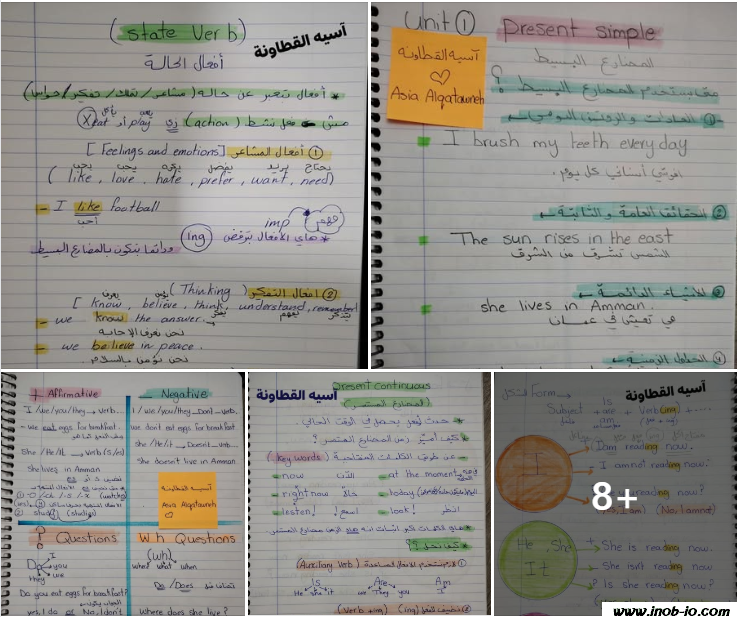 (state Verb)
آسيه القطاونة
أفعال الحالة
* أفعال تعبر عن حاله (مشاعر / تملك / تفكير / حواس)
مش فعل نشط (action) زي play أو eat
① أفعال المشاعر [Feelings and emotions]
يحب يحب يكره يفضل يريد يحتاج
(like, love, hate, prefer, want, need)
- I like football
أحب
imp مهم
* هاي الأفعال بترفض Ing
ودائما بتكون بالمضارع البسيط
② افعال التفكير (Thinking)
[know, believe, think, understand, remember
- we know the answer.
نحن نعرف الإجابة
- we believe in peace.
نحن نؤمن بالسلام.
Unit ① Present simple
المضارع البسيط
آسيه القطاونه
♡
Asia Alqatawneh
متى يستخدم المضارع البسيط؟
① العادات والروتين اليومي
I brush my teeth everyday
افرشي أسناني كل يوم.
② الحقائق العامة والثابتة
The sun rises in the east
الشمس تشرق من الشرق
③ الاشياء الدائمة
she lives in Amman.
هي تعيش في عمان
④ الجداول الزمنية
+ Affirmative
I/we/you/they → verb.
- we eat eggs for breakfast.
She/He/It → Verb (s/es)
She lives in Amman
- Negative
I/we/you/they → Don't - verb.
we don't eat eggs for breakfast.
She/He/It → Doesn't - verb
She doesn't live in Amman
آسيه القطاونه
Asia Alqatawneh
♡
? Questions
Do I you we they
Do you eat eggs for breakfast?
yes, I do or No, I don't
Wh Questions
(wh)
who? what? when
Do/Does
Where does she live?
آسيه القطاونة
Present continuous
(المضارع المستمر)
* حدث يحصل في الوقت الحالي.
* كيف أميز زمن المضارع المستمر؟
عن طريق الكلمات المفتاحية (Key words)
- now الآن - at the moment
- right now حالا - today
- lesten! اسمع! - look! انظر
* كيف نحل؟
① (Auxiliary Verb)
Is Are Am
He she it we They you I
② (Verb + ing) (ing)
آسيه القطاونة
Form
Subject + is are am + Verb(ing) + ....
I
I am reading now.
I am not reading now.
reading now?
(No, I am not)
He, She
It
+ She is reading now.
- She isn't reading now
? Is she reading now?
8+
www.inob-io.com